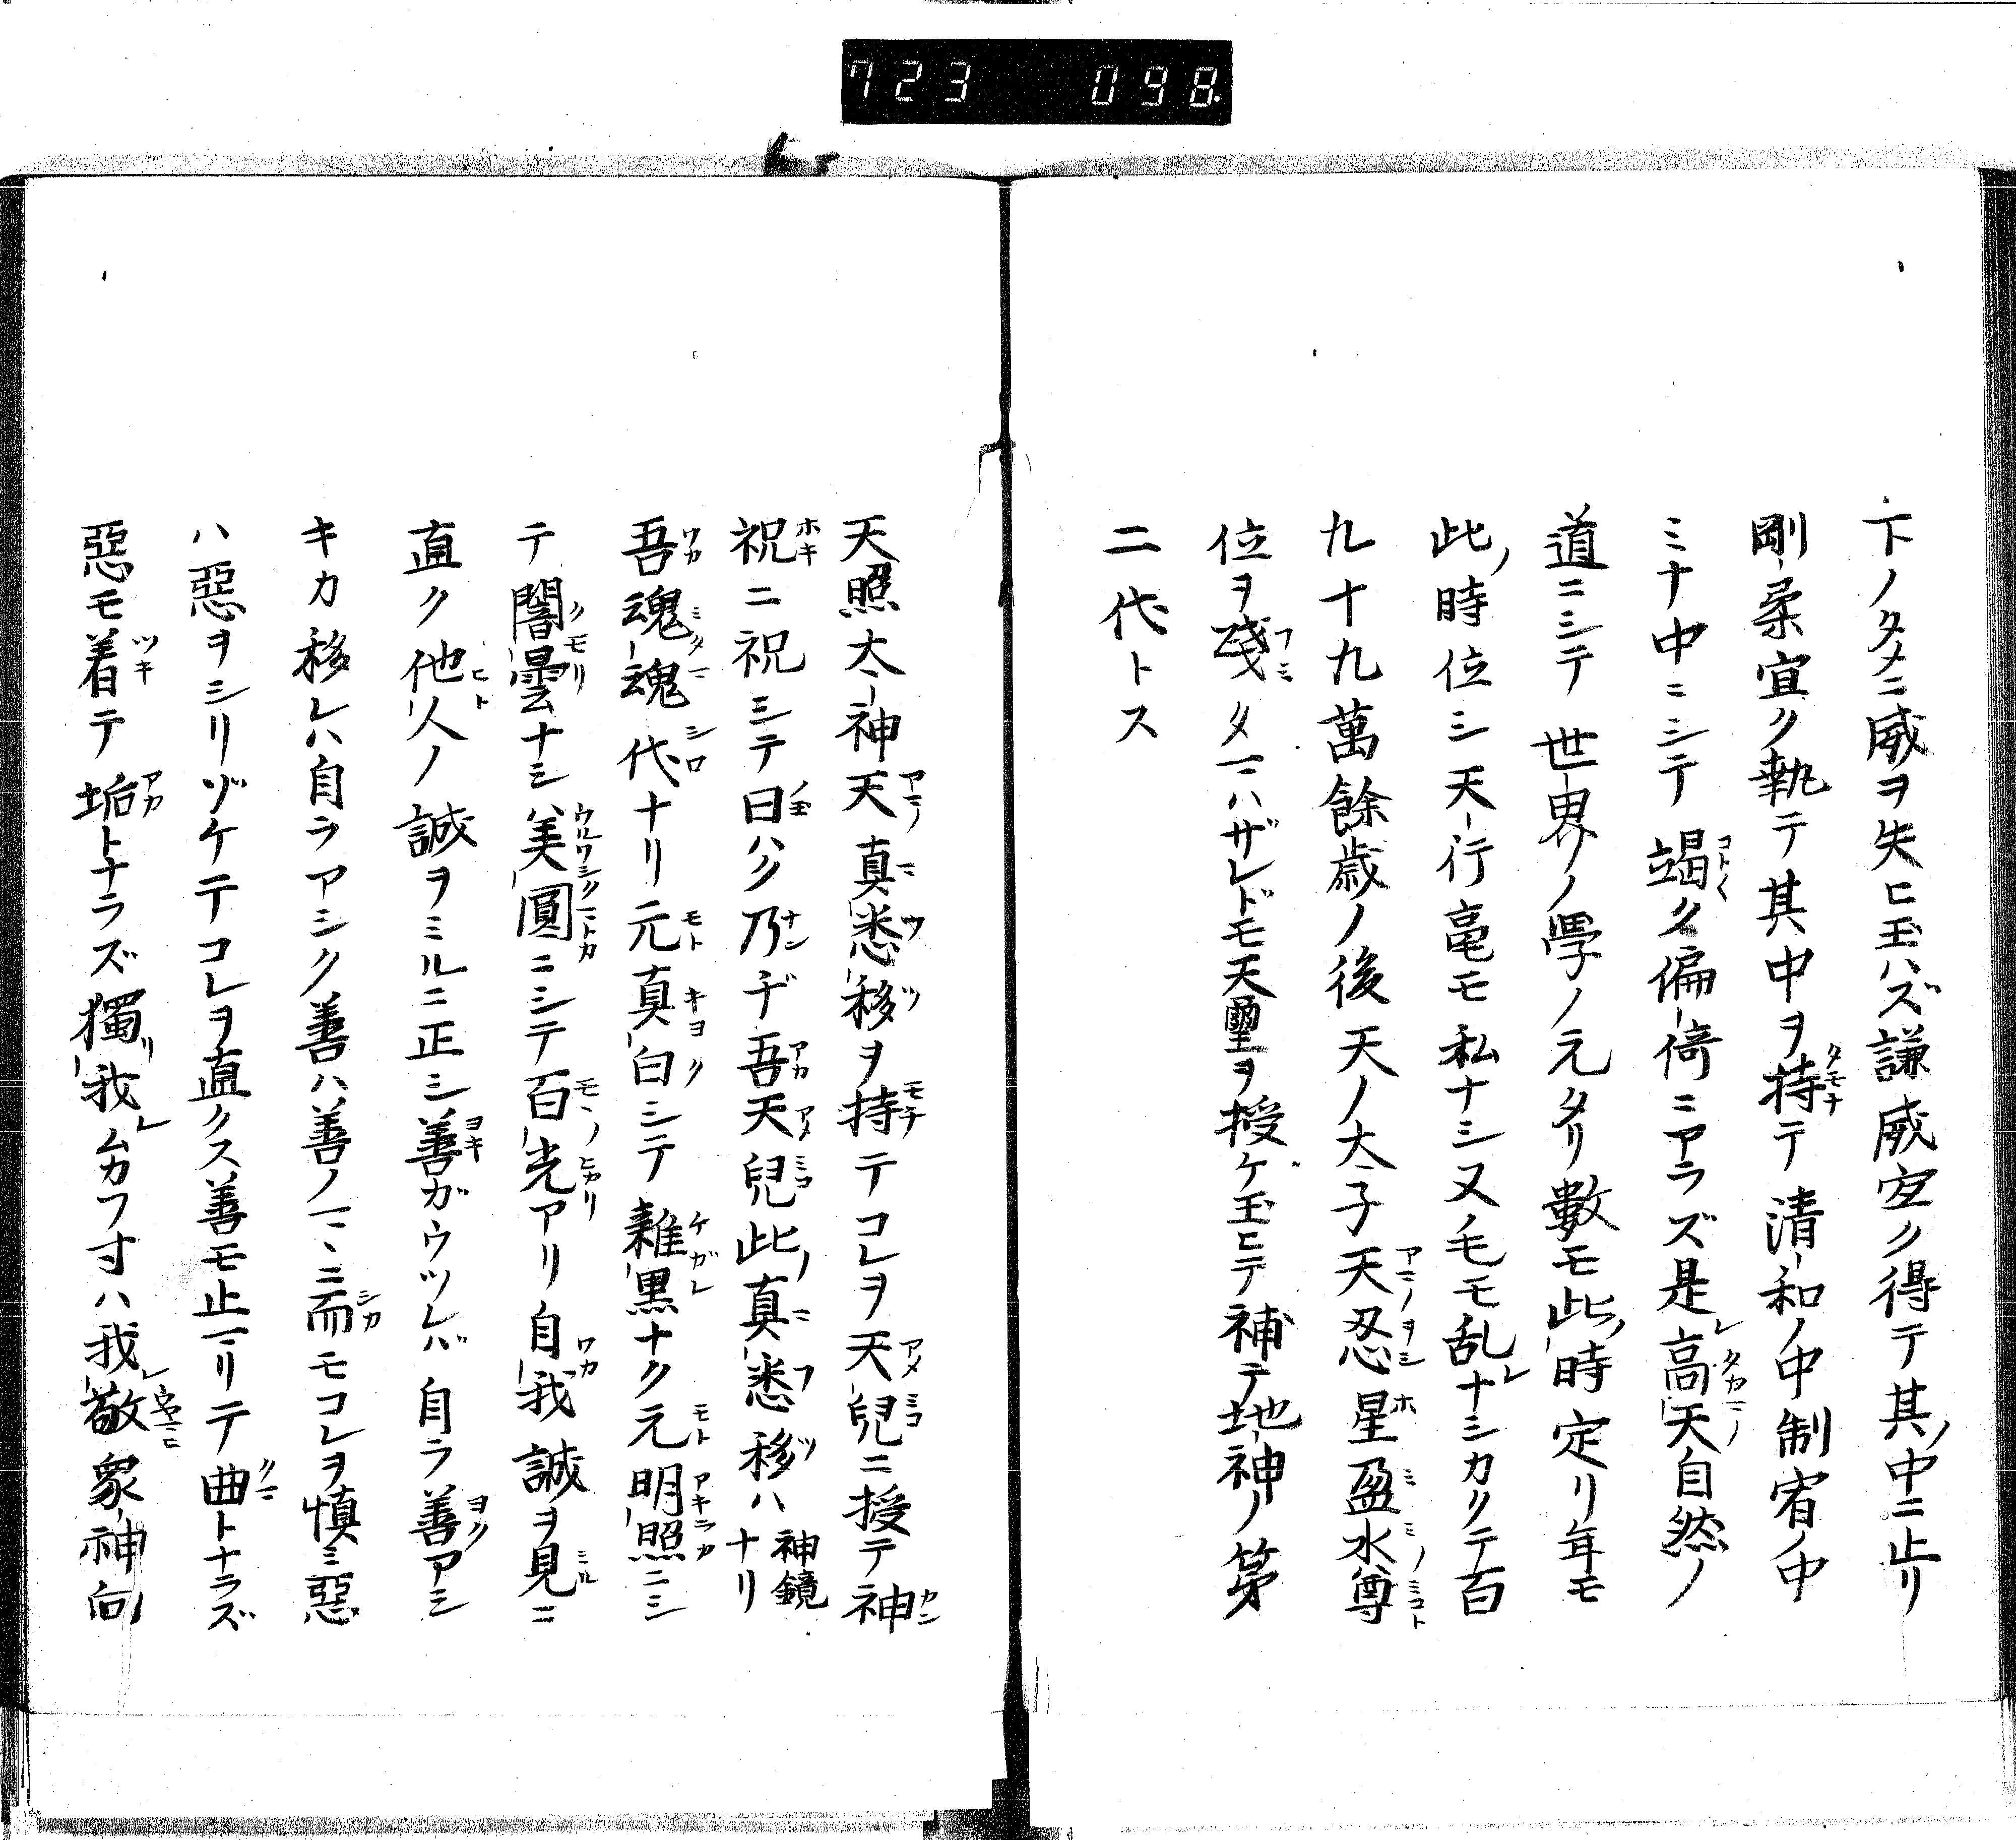 723 098.
下ノタメニ威ヲ失ヒ玉ハズ謙威宜ク得テ其ノ中ニ止リ
剛柔宜ク執テ其中ヲ持テ清和ノ中制宥ノ中
ミナ中ニシテ竭ク偏倚ニアラズ是レ高天自然ノ
道ニシテ世界ノ學ノ元タリ數モ此ノ時定リ年モ
此ノ時位シ天行毫モ私ナシ又毛モ乱レナシカクテ百
九十九萬餘歳ノ後天ノ太子天忍星盈水尊
位ヲ踐タマハザレドモ天璽ヲ授ケ玉ヒテ補テ地神ノ第
二代トス
天照太神天真悉移ヲ持テコレヲ天兒ニ授テ神
祝ニ祝シテ曰ハク乃チ吾天兒此ノ真悉移ハ神鏡ナリ
吾魂魂代ナリ元真白シテ雜黒ナク元明照ニシ
テ闇曇ナシ美圓ニシテ百光アリ自我誠ヲ見ニ
直ク他人ノ誠ヲミルニ正シ善ガウツレバ自ラ善アシ
キカ移レハ自ラアシク善ハ善ノマヽニ而モコレヲ慎ミ惡
ハ惡ヲシリゾケテコレヲ直クス善モ止マリテ曲トナラズ
惡モ着テ垢トナラズ獨リ我レムカフ寸ハ我レ敬衆神向